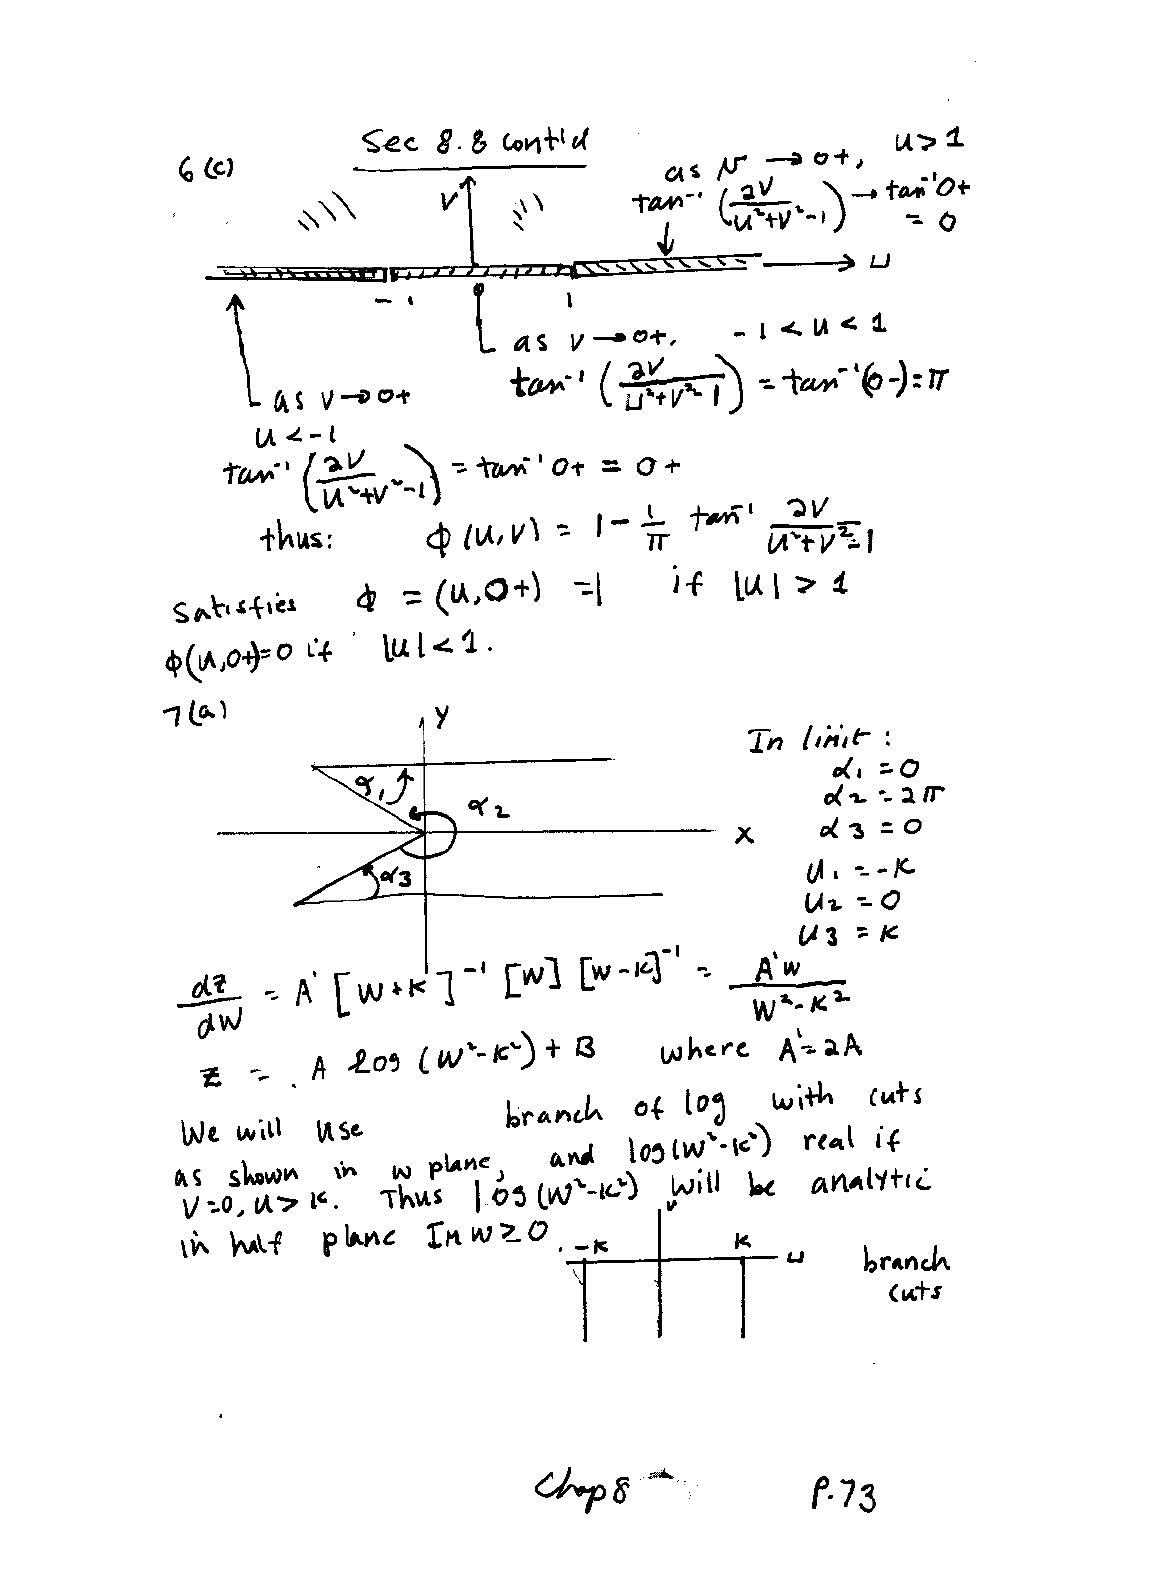 Sec 8.8 cont'd
6 (c)
as v → 0+, u > 1
tan⁻¹ (2v / (u²+v²-1)) → tan⁻¹ 0+
= 0
v
u
-1
1
as v → 0+, -1 < u < 1
tan⁻¹ (2v / (u²+v²-1)) = tan⁻¹(0-) = π
as v → 0+
u < -1
tan⁻¹ (2v / (u²+v²-1)) = tan⁻¹ 0+ = 0+
thus: φ(u,v) = 1 - 1/π tan⁻¹ 2v / (u²+v²-1)
Satisfies φ = (u,0+) = 1 if |u| > 1
φ(u,0+)=0 if |u| < 1.
7(a)
y
α₁
α₂
x
α₃
In limit :
α₁ = 0
α₂ = 2π
α₃ = 0
u₁ = -k
u₂ = 0
u₃ = k
dz/dw = A' [w+k]⁻¹ [w] [w-k]⁻¹ = A'w / (w²-k²)
z = A log (w²-k²) + B where A' = 2A
We will use branch of log with cuts
as shown in w plane, and log(w²-k²) real if
v=0, u > k. Thus log(w²-k²) will be analytic
in half plane Im w ≥ 0.
v
-k
k
u
branch
cuts
Chap 8
P.73